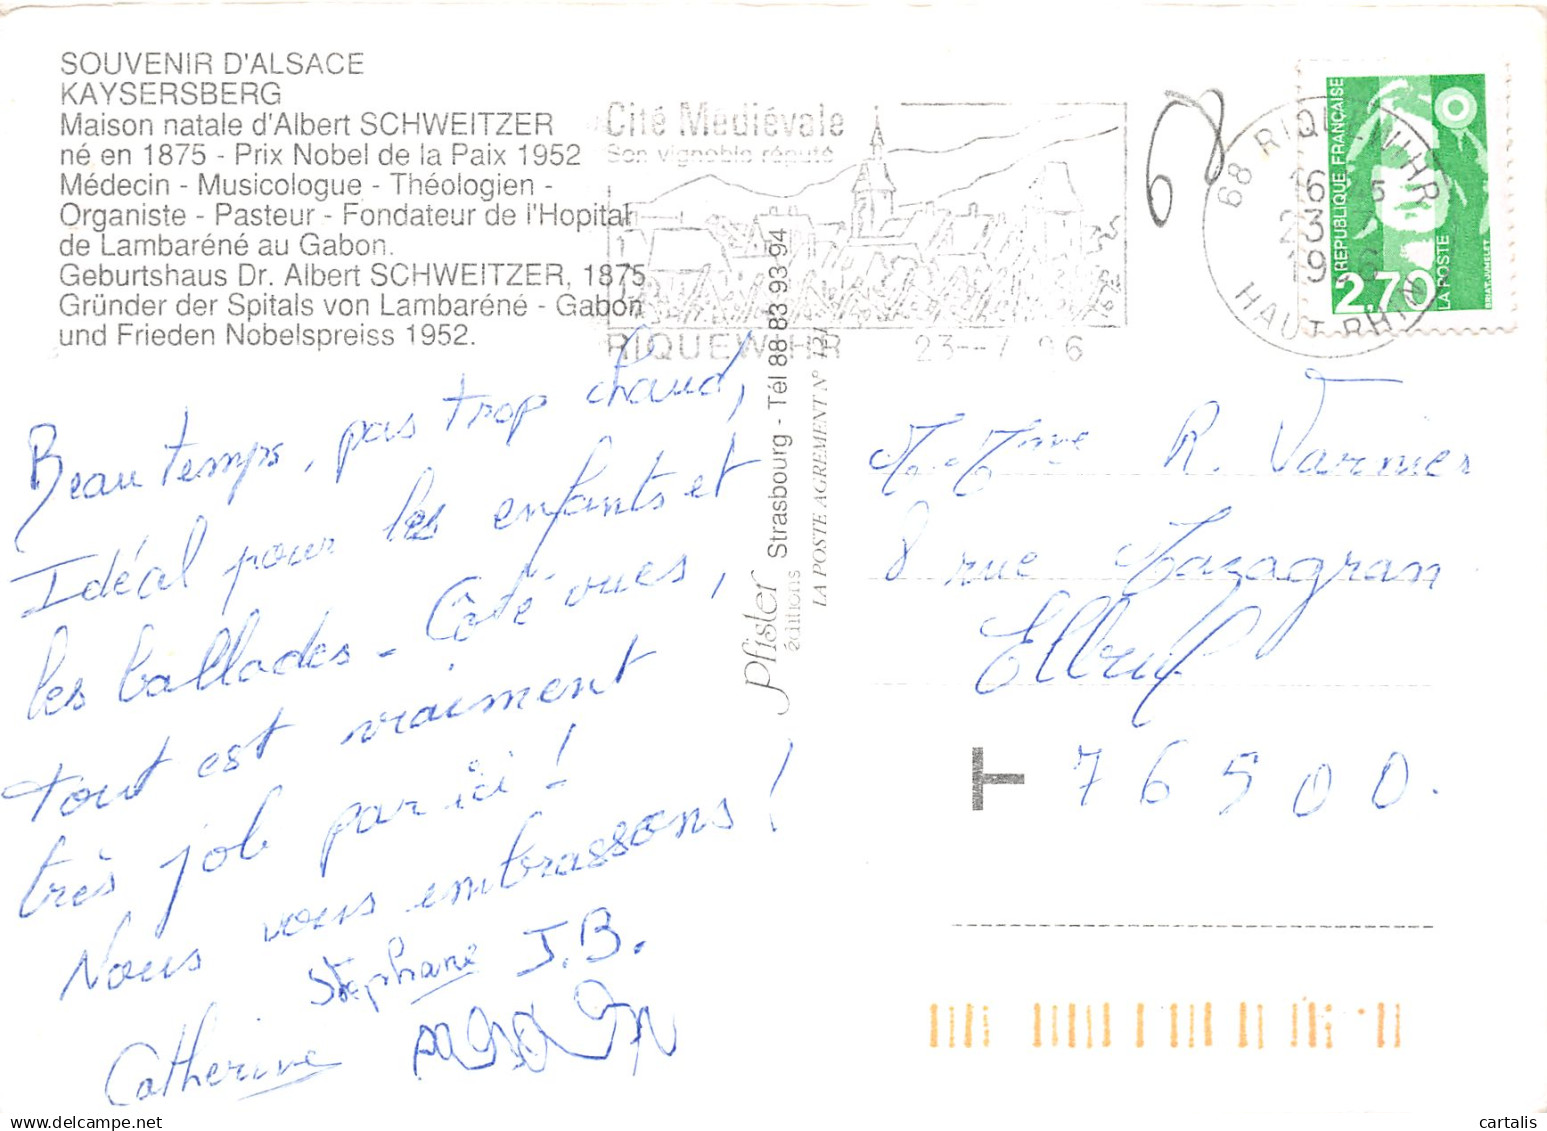 SOUVENIR D'ALSACE
KAYSERSBERG
Maison natale d'Albert SCHWEITZER
né en 1875 - Prix Nobel de la Paix 1952
Médecin - Musicologue - Théologien -
Organiste - Pasteur - Fondateur de l'Hopital
de Lambaréné au Gabon.
Geburtshaus Dr. Albert SCHWEITZER, 1875
Gründer der Spitals von Lambaréné - Gabon
und Frieden Nobelspreiss 1952.
Cité Médiévale
Son vignoble réputé
RIQUEWIHR 23--7 96
68 RIQUEWIHR
16 45
23 7
19
HAUT RHIN
REPUBLIQUE FRANÇAISE
2,70
LA POSTE
BRIAT-JUMELET
Beau temps, pas trop chaud,
Idéal pour les enfants et
les ballades - Côté vues,
tout est vraiment
très job par ici !
Nous vous embrassons !
Stéphane J.B.
Catherine
Pfister
éditions
Strasbourg - Tél 88 83 93 94
LA POSTE AGREMENT N°
M. Mme R. Varnier
8 rue Mazagran
Elbeuf
T 76500.
delcampe.net
cartalis